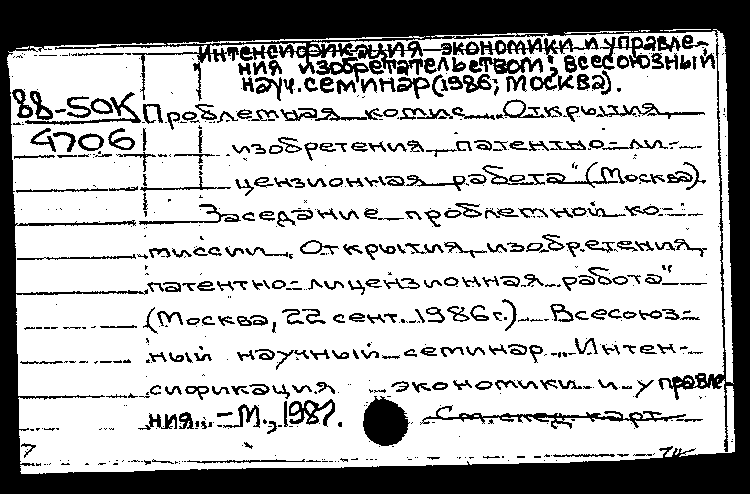 "Интенсификация экономики и управле-
ния изобретательством", всесоюзный
науч. семинар (1986; Москва).
88-50К Проблемная комис. „Открытия,
4706 изобретения, патентно-ли-
цензионная работа" (Москва).
Заседание проблемной ко-
миссии „Открытия, изобретения,
патентно-лицензионная работа"
(Москва, 22 сент. 1986 г.) Всесоюз-
ный научный семинар „Интен-
сификация экономики и управле-
ния.. – М., 1987.
См. след. карт.